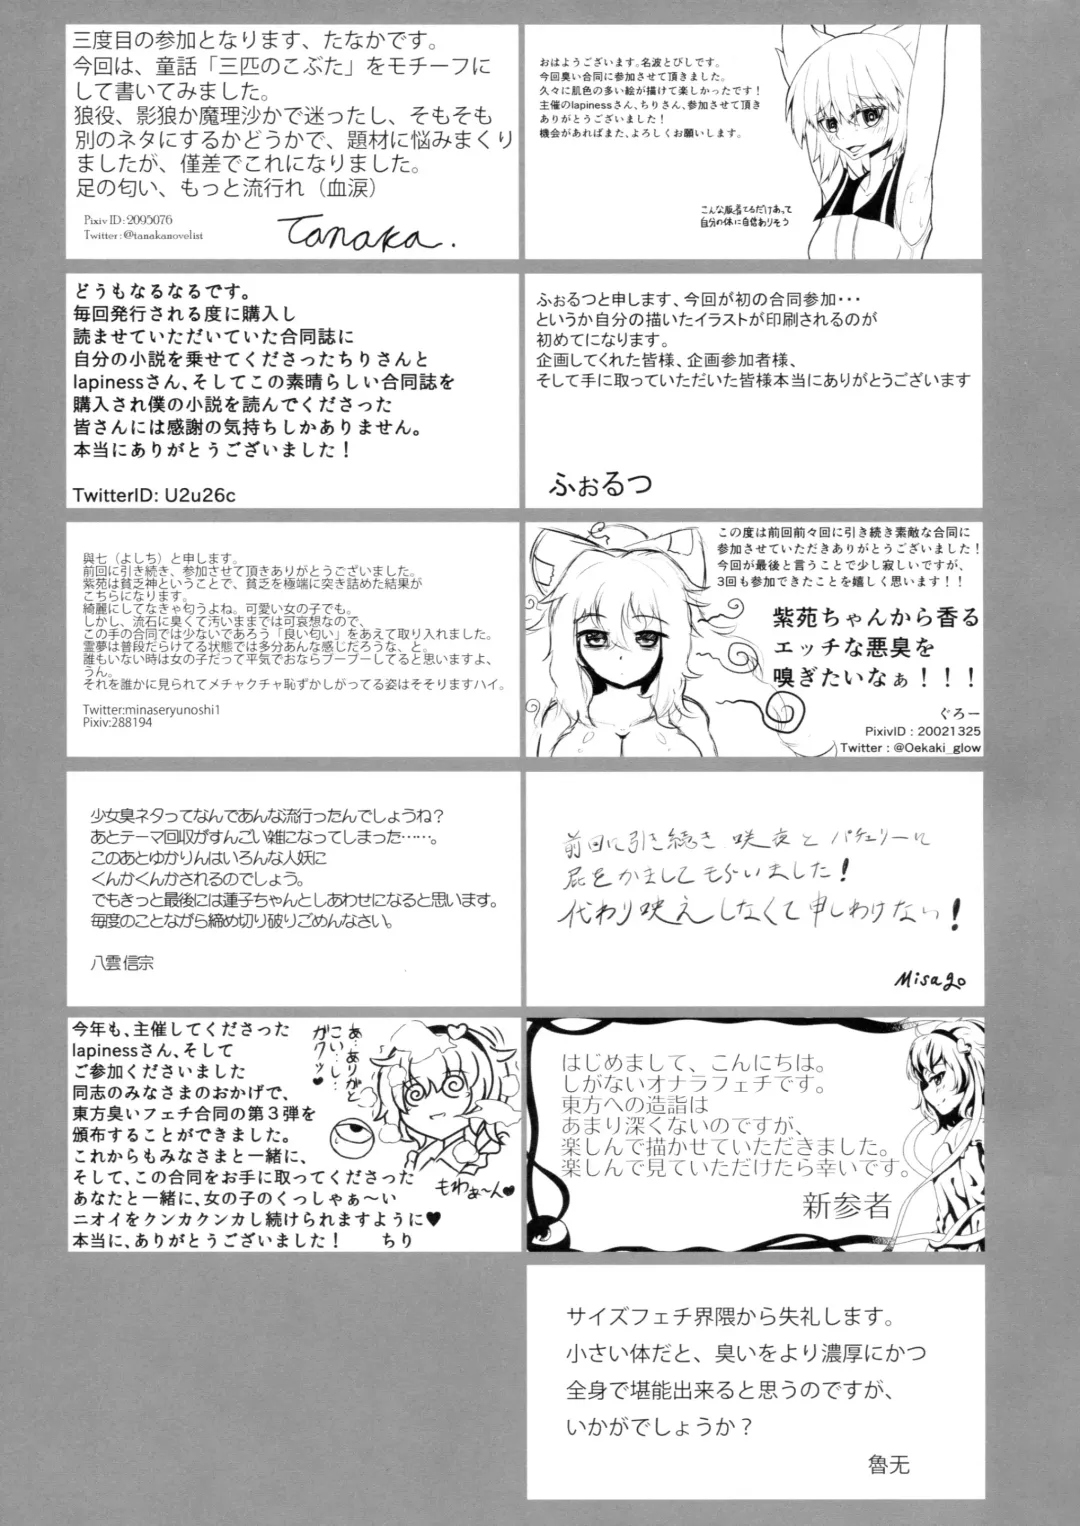 三度目の参加となります、たなかです。
今回は、童話「三匹のこぶた」をモチーフに
して書いてみました。
狼役、影狼か魔理沙かで迷ったし、そもそも
別のネタにするかどうかで、題材に悩みまくり
ましたが、僅差でこれになりました。
足の匂い、もっと流行れ（血涙）
Pixiv ID : 2095076
Twitter : @tanakanovelist
Tanaka.
おはようございます。名波とびしです。
今回臭い合同に参加させて頂きました。
久々に肌色の多い絵が描けて楽しかったです！
主催のlapinessさん、ちりさん、参加させて頂き
ありがとうございました！
機会があればまた、よろしくお願いします。
こんな服着てるだけあって
自分の体に自信ありそう
どうもなるなるです。
毎回発行される度に購入し
読ませていただいていた合同誌に
自分の小説を乗せてくださったちりさんと
lapinessさん、そしてこの素晴らしい合同誌を
購入され僕の小説を読んでくださった
皆さんには感謝の気持ちしかありません。
本当にありがとうございました！
TwitterID: U2u26c
ふぉるつと申します、今回が初の合同参加・・・
というか自分の描いたイラストが印刷されるのが
初めてになります。
企画してくれた皆様、企画参加者様、
そして手に取っていただいた皆様本当にありがとうございます
ふぉるつ
與七（よしち）と申します。
前回に引き続き、参加させて頂きありがとうございました。
紫苑は貧乏神ということで、貧乏を極端に突き詰めた結果が
こちらになります。
綺麗にしてなきゃ匂うよね。可愛い女の子でも。
しかし、流石に臭くて汚いままでは可哀想なので、
この手の合同では少ないであろう「良い匂い」をあえて取り入れました。
霊夢は普段だらけてる状態では多分あんな感じだろうな、と。
誰もいない時は女の子だって平気でおならブーブーしてると思いますよ、
うん。
それを誰かに見られてメチャクチャ恥ずかしがってる姿はそそりますハイ。
Twitter:minaseryunoshi1
Pixiv:288194
この度は前回前々回に引き続き素敵な合同に
参加させていただきありがとうございました！
今回が最後と言うことで少し寂しいですが、
3回も参加できたことを嬉しく思います！！
紫苑ちゃんから香る
エッチな悪臭を
嗅ぎたいなぁ！！！
ぐろー
PixivID : 20021325
Twitter : @Oekaki_glow
少女臭ネタってなんであんな流行ったんでしょうね？
あとテーマ回収がすんごい雑になってしまった……。
このあとゆかりんはいろんな人妖に
くんかくんかされるのでしょう。
でもきっと最後には蓮子ちゃんとしあわせになると思います。
毎度のことながら締め切り破りごめんなさい。
八雲信宗
前回に引き続き 咲夜と パチュリーに
屁をかましてもらいました！
代わり映えしなくて申しわけない！
Misago
今年も、主催してくださった
lapinessさん、そして
ご参加くださいました
同志のみなさまのおかげで、
東方臭いフェチ合同の第３弾を
頒布することができました。
これからもみなさまと一緒に、
そして、この合同をお手に取ってくださった
あなたと一緒に、女の子のくっしゃぁ～い
ニオイをクンカクンカし続けられますように♥
本当に、ありがとうございました！　ちり
あ…ありがと
こい…し…
ガクッ♥
もわぁ～ん♥
はじめまして、こんにちは。
しがないオナラフェチです。
東方への造詣は
あまり深くないのですが、
楽しんで描かせていただきました。
楽しんで見ていただけたら幸いです。
新参者
サイズフェチ界隈から失礼します。
小さい体だと、臭いをより濃厚にかつ
全身で堪能出来ると思うのですが、
いかがでしょうか？
魯无